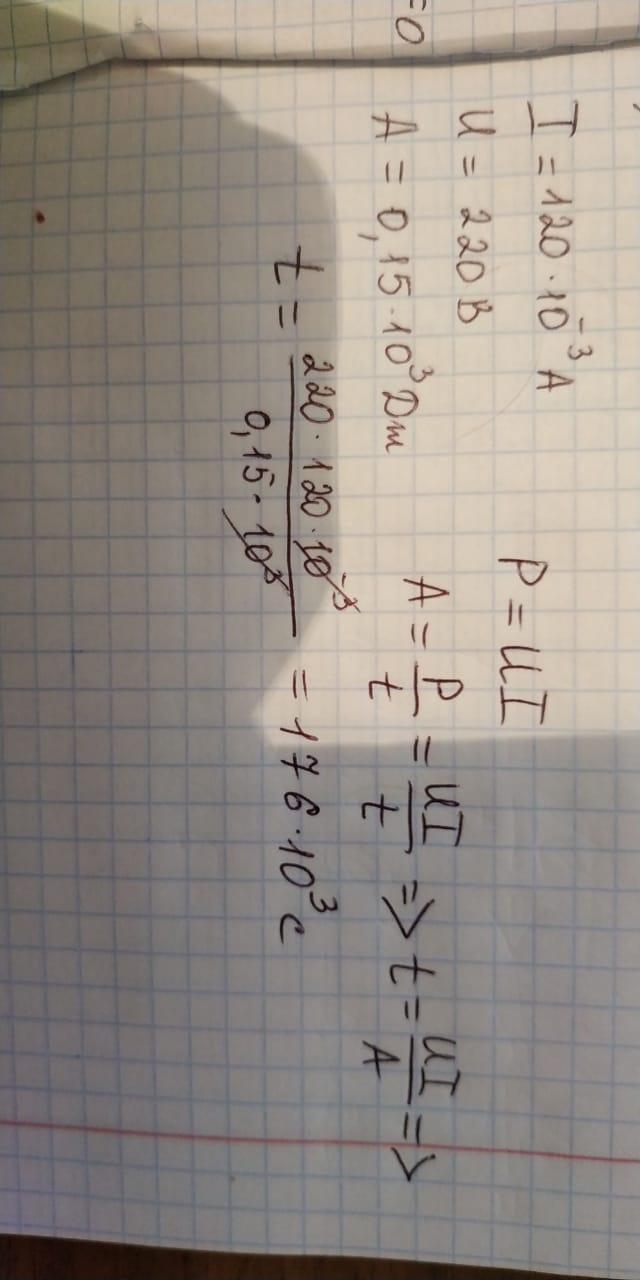 =0
I = 120·10⁻³ A
U = 220 В
A = 0,15·10³ Дж
P = UI
A = P/t = UI/t => t = UI/A =>
t = 220·120·10⁻³/0,15·10³ = 176·10³ с